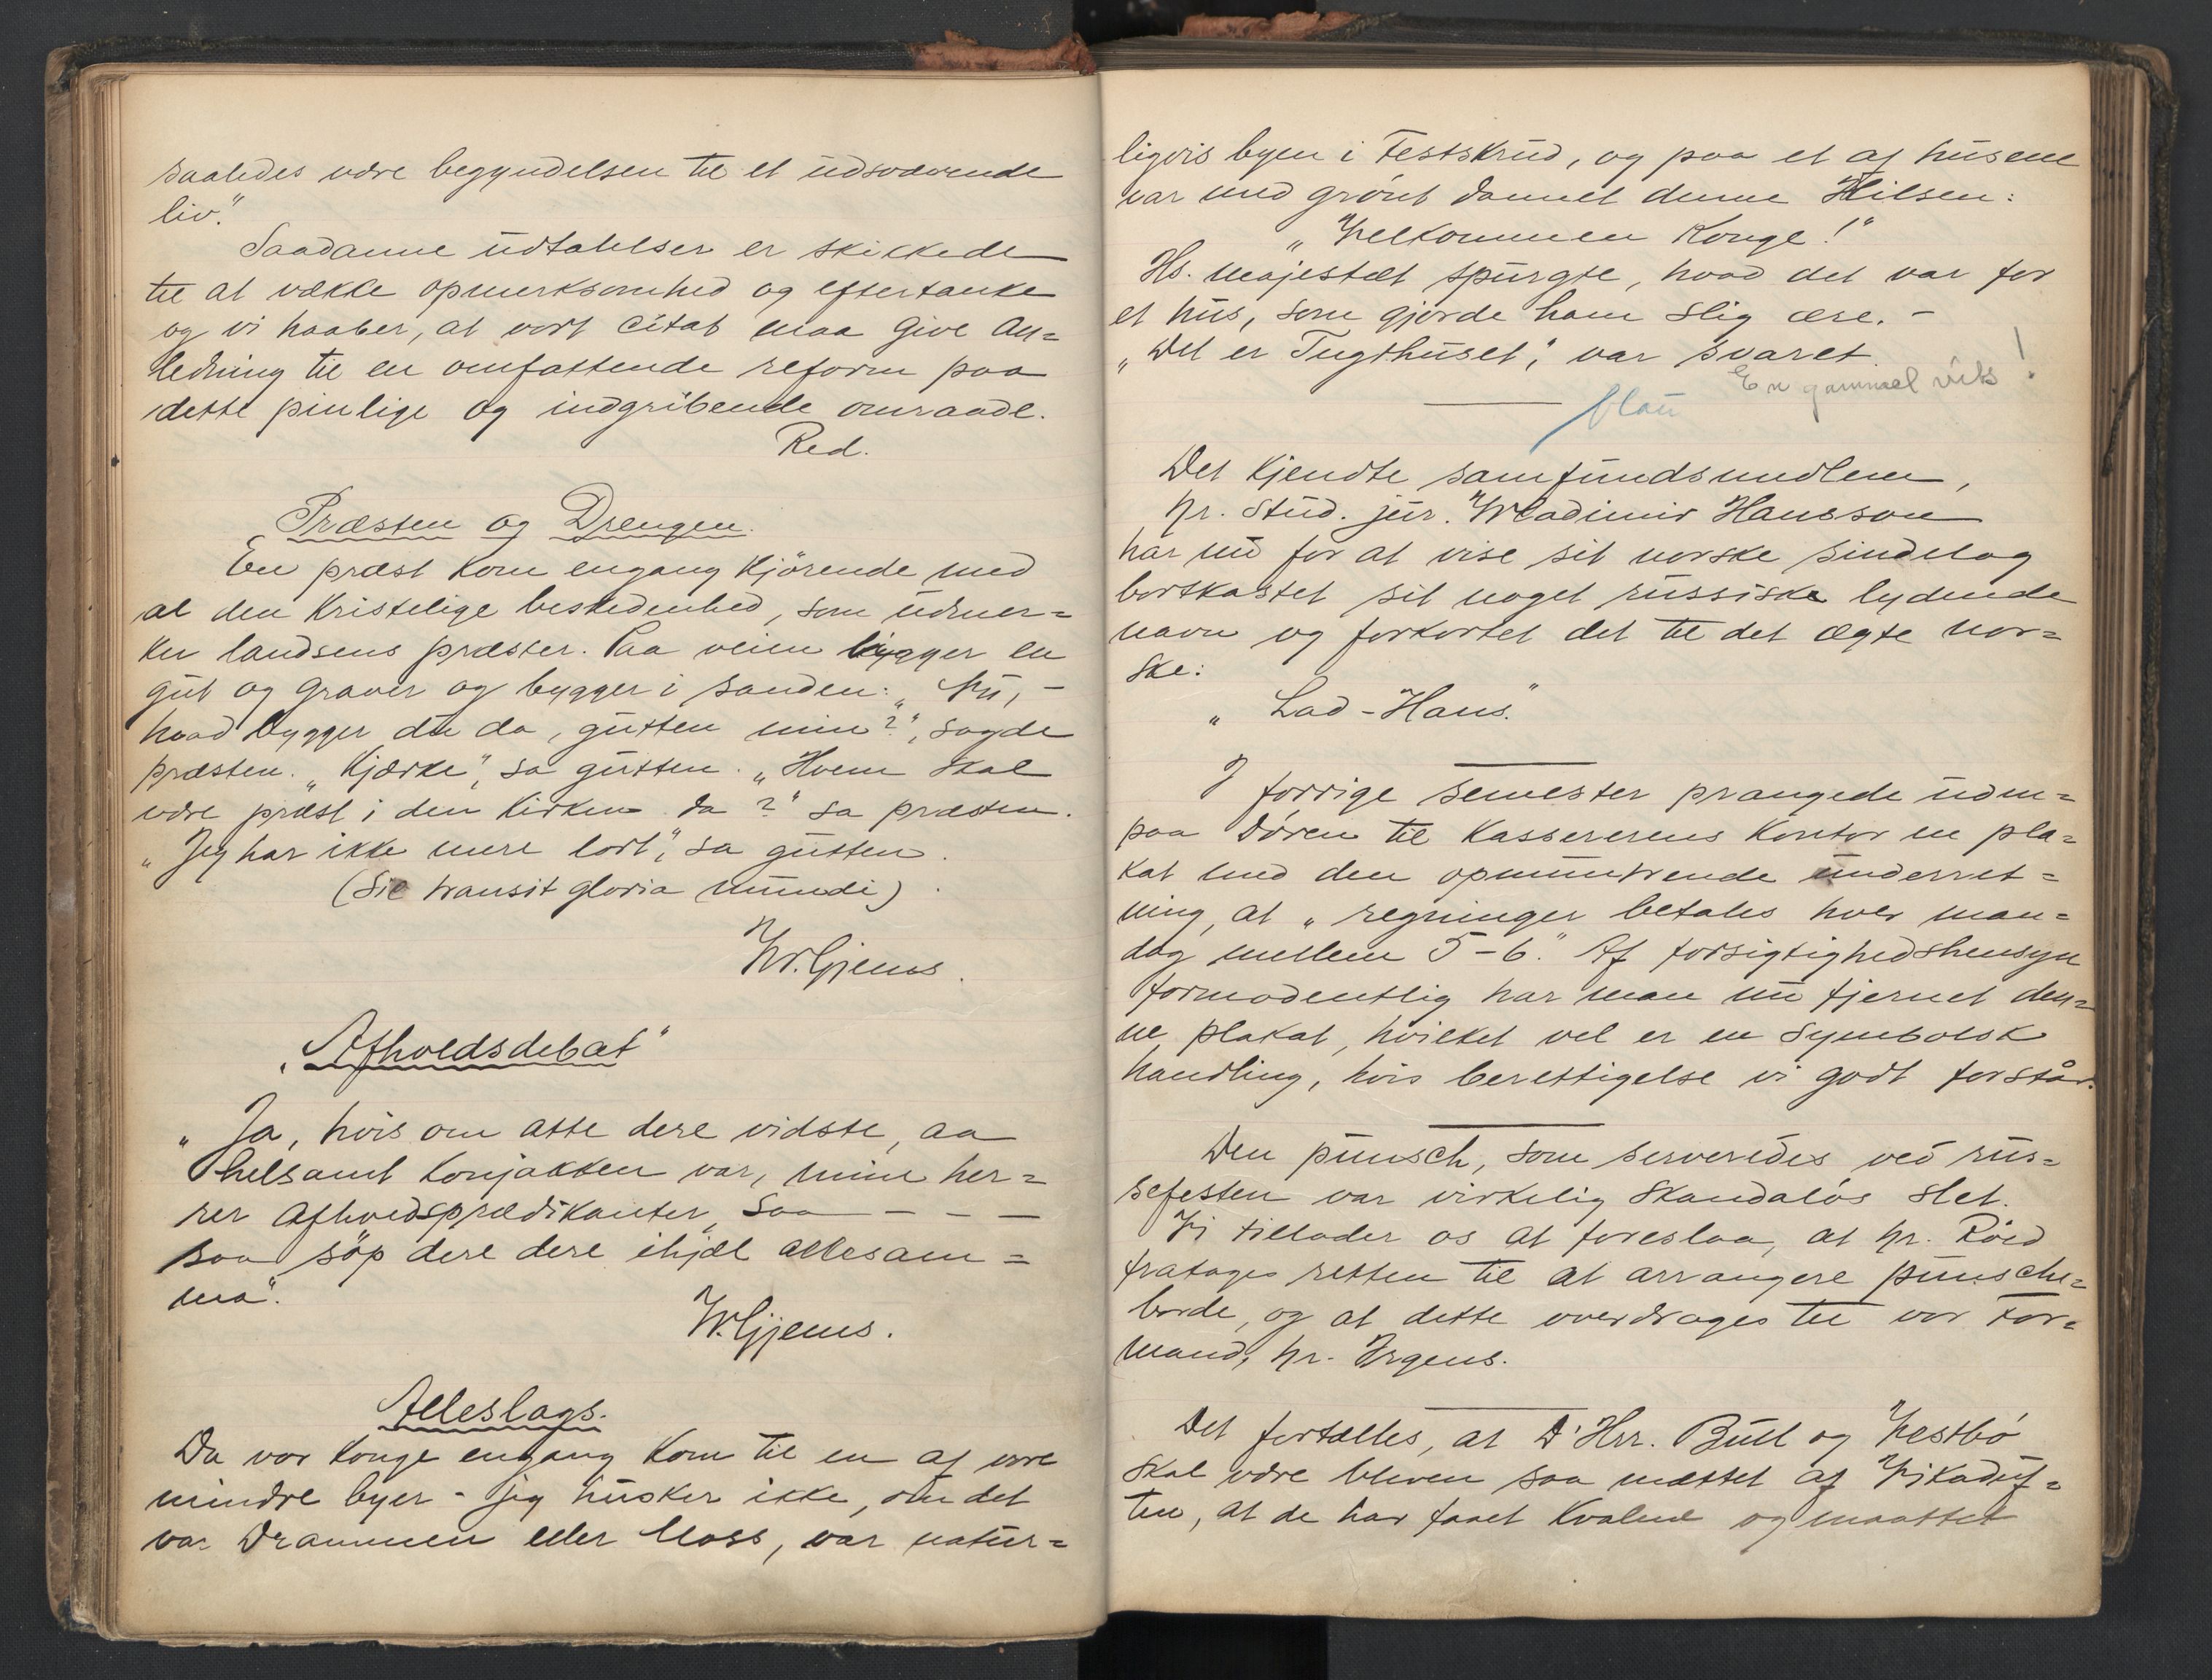 saaledes være begyndelsen til et udsvævende
liv."
Saadanne udtalelser er skikkede
til at vække opmerksomhed og eftertanke
og vi haaber, at vort citat maa give An=
ledning til en omfattende reform paa
dette pinlige og indgribende omraade.
Red.
Præsten og Drengen.
En præst kom engang kjørende med
al den kristelige beskedenhed, som udmer=
ker landsens præster. Paa veien ligger en
gut og graver og bygger i sanden: „Nu, -
hvad bygger du da, gutten min?", sagde
præsten. „Kjærke", sa gutten. „Hvem skal
være præst i den kirken da?" sa præsten.
„Jeg har ikke mere lort," sa gutten.
(Sic transit gloria mundi).
W. Gjems.
„Afholdsdebat"
„Ja, hvis om atte dere vidste, aa
helsamt konjakken var, mine her=
rer Afholdsprædikanter, saa - - -
saa søp dere dere ihjæl allesam=
ma".
W. Gjems.
Alleslags.
Da vor konge engang kom til en af vore
mindre byer - jeg husker ikke, om det
var Drammen eller Moss, var natur=
ligvis byen i Festskrud, og paa et af husene
var med grønt dannet denne Hilsen:
„Velkommen Konge!"
Hs. majestæt spurgte, hvad det var for
et hus, som gjorde ham slig ære. -
„Det er Tugthuset," var svaret.
En gammel vits!
blau
Det kjendte samfundsmedlem,
hr. stud. jur. Wladimir Hansson
har nu for at vise sit norske sindelag
bortkastet sit noget russiske lydende
navn og forkortet det til det ægte nor=
ske:
„Lad-Hans."
I forrige semester prangede uden=
paa døren til Kassererens Kontor en pla=
kat med den opmuntrende underret=
ning, at „regninger betales hver man=
dag mellem 5-6." Af forsigtighedshensyn
formodentlig har man nu fjernet den=
ne plakat, hvilket vel er en symbolsk
handling, hvis berettigelse vi godt forstår.
Den punsch, som serveredes ved rus=
sefesten var virkelig skandaløs slet.
Vi tillader os at foreslaa, at hr. Röed
fratages retten til at arrangere punsche=
borde, og at dette overdrages til vor For=
mand, hr. Irgens.
Det fortælles, at D'Hrr. Bull og Vestbø
skal være bleven saa mættet af Vikaduf=
ten, at de har faaet Kvalme og maattet